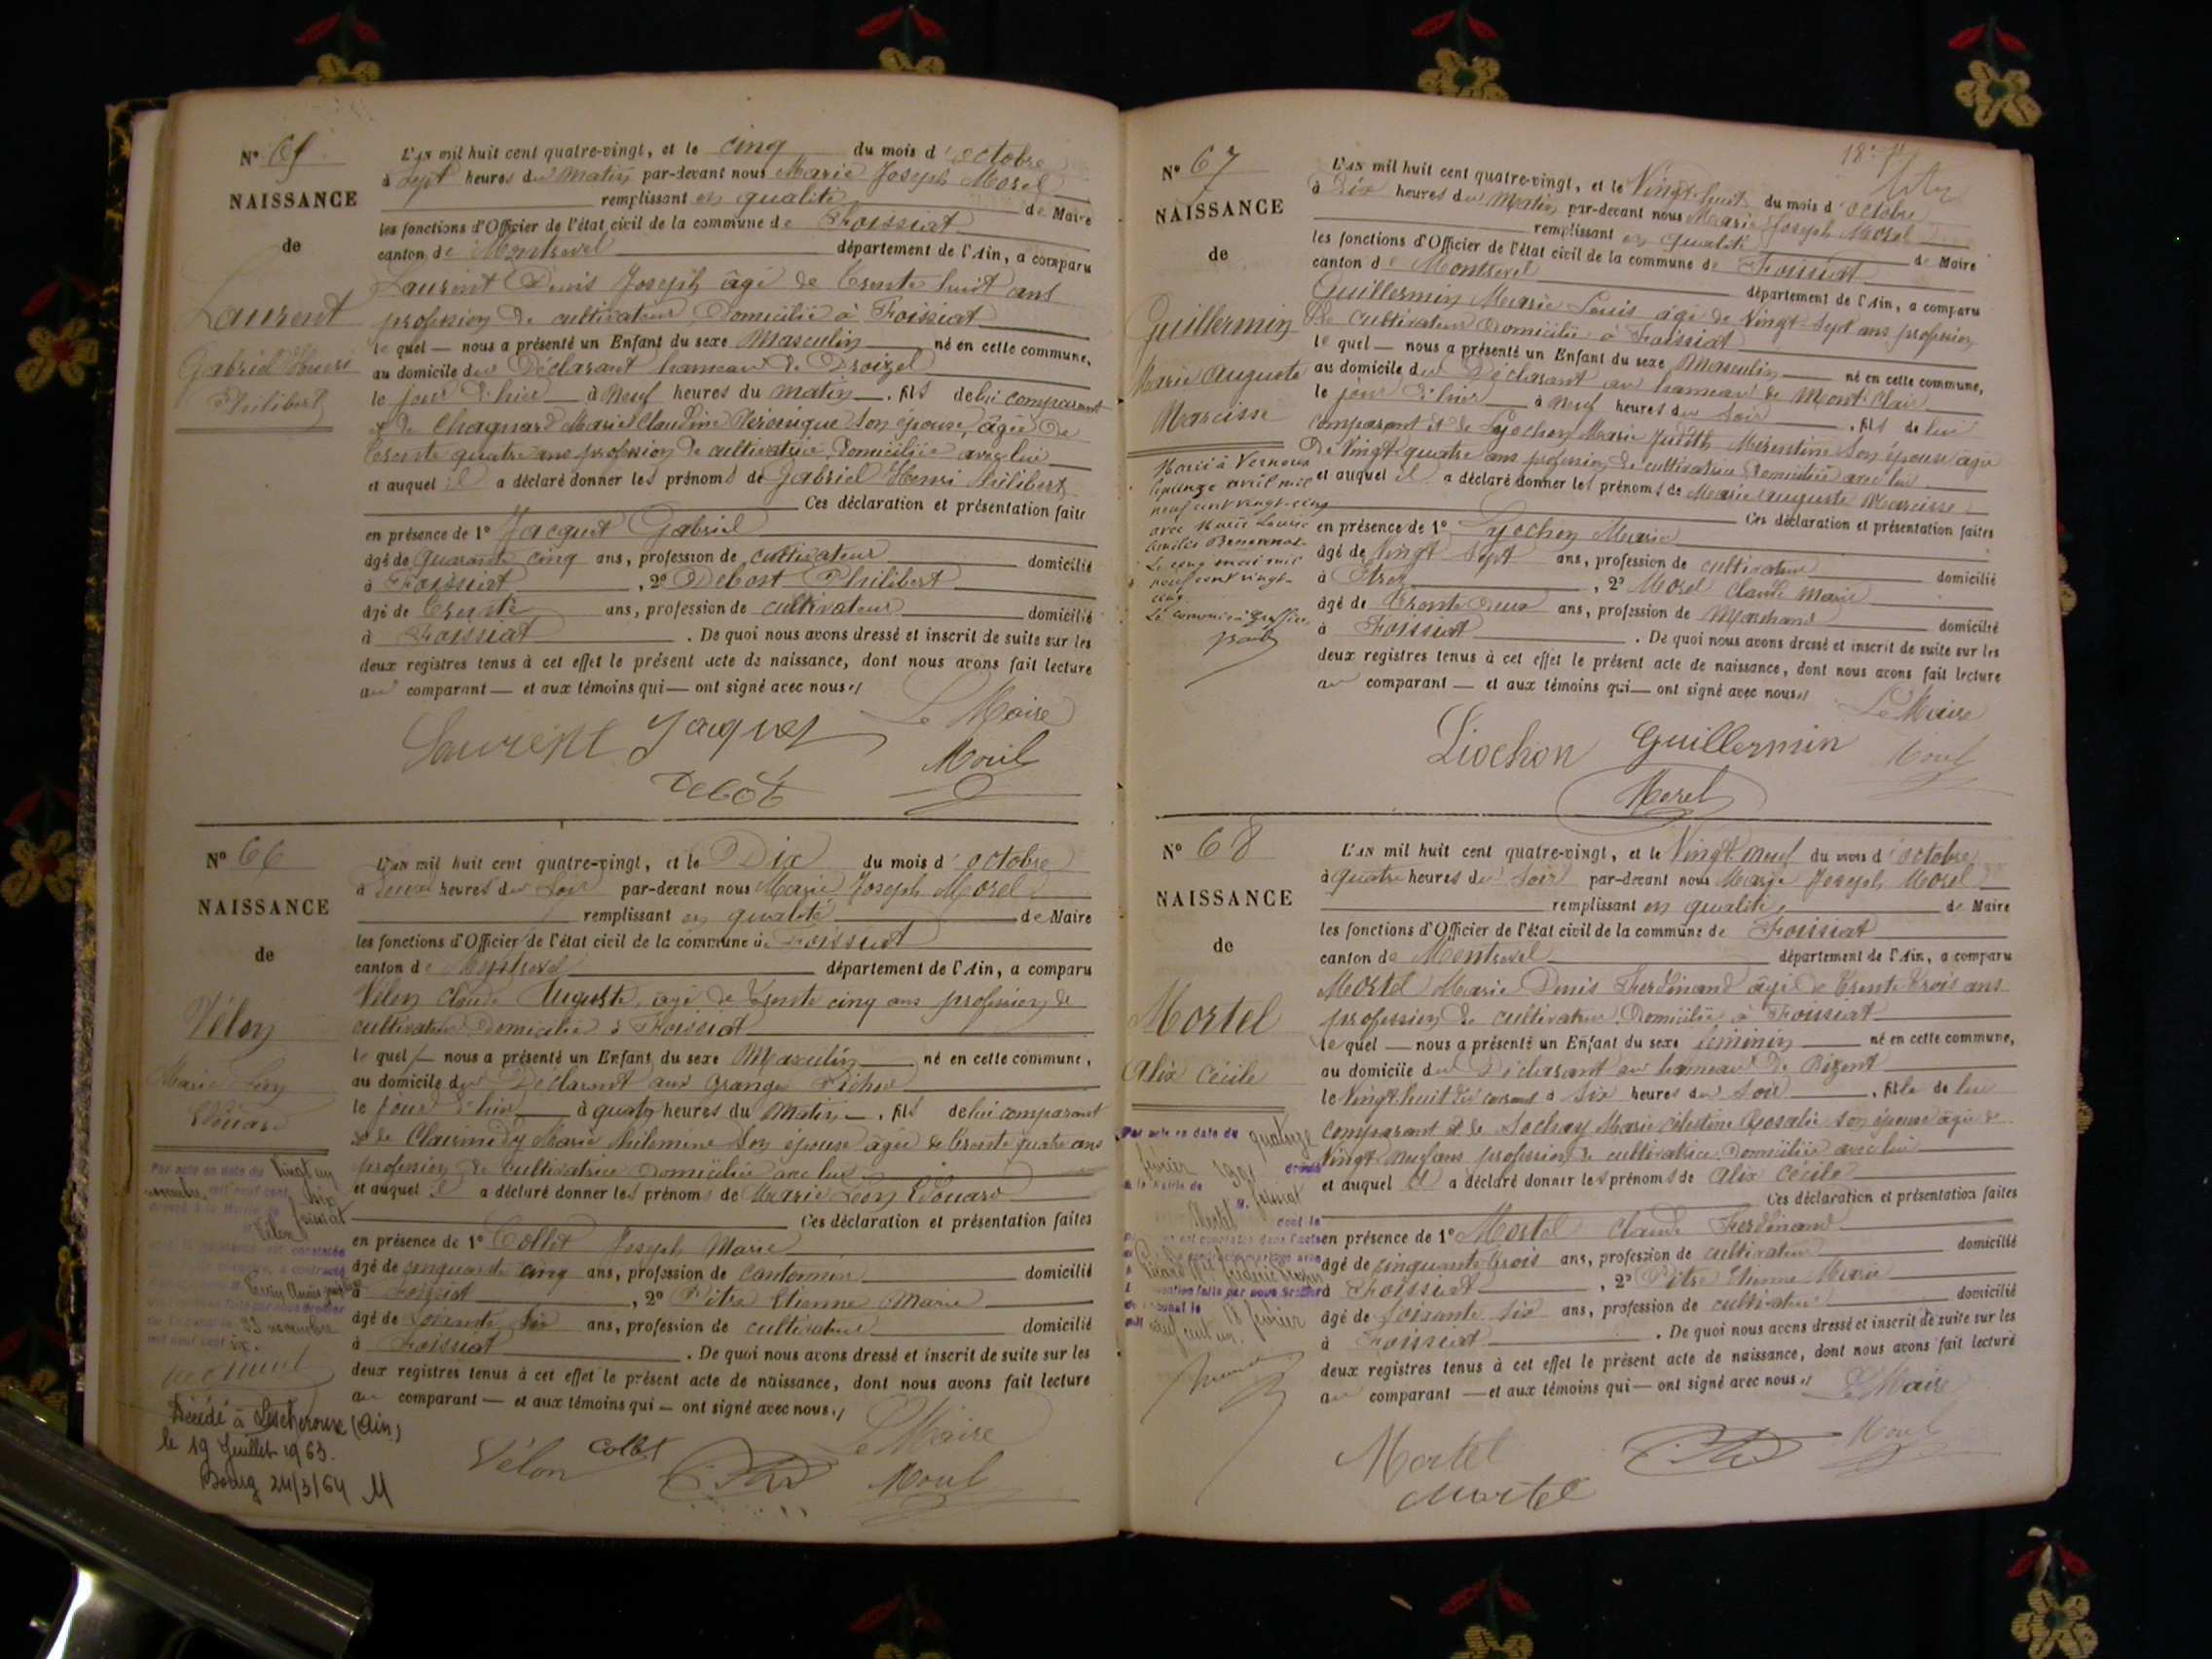 N° 65
NAISSANCE
de
Laurent
Gabriel Henri
Philibert
L'AN mil huit cent quatre-vingt, et le cinq du mois d'octobre
à Sept heures du Matin par-devant nous Marie Joseph Morel
remplissant en qualité de Maire
les fonctions d'Officier de l'état civil de la commune de Foissiat
canton de Montrevel département de l'Ain, a comparu
Laurent Denis Joseph âgé de trente huit ans
profession de cultivateur Domicilié à Foissiat
le quel — nous a présenté un Enfant du sexe Masculin né en cette commune,
au domicile du Déclarant hameau de Droizel
le jour d'hier à Neuf heures du matin . fils de lui comparant
et de Chagnard Marie Claudine Véronique son épouse, âgée de
trente quatre ans profession de cultivatrice Domiciliée avec lui
et auquel il a déclaré donner les prénoms de Gabriel Henri Philibert
Ces déclaration et présentation faite
en présence de 1° Jacquet Gabriel
âgé de quarante cinq ans, profession de cultivateur domicilié
à Foissiat , 2° Debost Philibert
âgé de trente ans, profession de cultivateur domicilié
à Foissiat . De quoi nous avons dressé et inscrit de suite sur les
deux registres tenus à cet effet le présent acte de naissance, dont nous avons fait lecture
au comparant — et aux témoins qui — ont signé avec nous
Le Maire
Laurent Jaquet
Morel
N° 66
NAISSANCE
de
Vélon
Marie Léon
Edouard
L'AN mil huit cent quatre-vingt, et le Dix du mois d'octobre
à Deux heures du Soir par-devant nous Marie Joseph Morel
remplissant en qualité de Maire
les fonctions d'Officier de l'état civil de la commune de Foissiat
canton de Montrevel département de l'Ain, a comparu
Vélon Claude Auguste âgé de trente cinq ans profession de
cultivateur Domicilié à Foissiat
le quel — nous a présenté un Enfant du sexe Masculin né en cette commune,
au domicile du Déclarant aux Granges
le jour d'hier à quatre heures du Matin . fils de lui comparant
et de Marie Philomène son épouse âgée de trente quatre ans
profession de cultivatrice Domiciliée avec lui
et auquel il a déclaré donner les prénoms de Marie Léon Edouard
Ces déclaration et présentation faites
en présence de 1° Collet Joseph Marie
âgé de cinquante cinq ans, profession de cantonnier domicilié
à Foissiat , 2° Pitre Etienne Marie
âgé de soixante six ans, profession de cultivateur domicilié
à Foissiat . De quoi nous avons dressé et inscrit de suite sur les
deux registres tenus à cet effet le présent acte de naissance, dont nous avons fait lecture
au comparant — et aux témoins qui — ont signé avec nous
Le Maire
Vélon Collet
Morel
Par acte en date du vingt un
novembre
Foissiat
Vélon
23 novembre
mil neuf cent six.
Décédé à Lescheroux (Ain)
le 19 Juillet 1963.
Bourg 24/3/64 M
N° 67
NAISSANCE
de
Guillermin
Marie Auguste
Narcisse
L'AN mil huit cent quatre-vingt, et le Vingt-huit du mois d'octobre
à Dix heures du Matin par-devant nous Marie Joseph Morel
remplissant en qualité de Maire
les fonctions d'Officier de l'état civil de la commune de Foissiat
canton de Montrevel département de l'Ain, a comparu
Guillermin Marie Louis âgé de Vingt-Sept ans profession
de cultivateur Domicilié à Foissiat
le quel — nous a présenté un Enfant du sexe Masculin né en cette commune,
au domicile du Déclarant au hameau de
le jour d'hier à Neuf heures du Soir . fils de lui
comparant et de Lyochon Marie Judith son épouse âgée
de Vingt-quatre ans profession de cultivatrice Domiciliée avec lui
et auquel il a déclaré donner les prénoms de Marie Auguste Narcisse
Ces déclaration et présentation faites
en présence de 1° Lyochon Marie
âgé de Vingt Sept ans, profession de cultivateur domicilié
à Etrez , 2° Morel Claude Marie
âgé de trente Deux ans, profession de Marchand domicilié
à Foissiat . De quoi nous avons dressé et inscrit de suite sur les
deux registres tenus à cet effet le présent acte de naissance, dont nous avons fait lecture
au comparant — et aux témoins qui — ont signé avec nous
Le Maire
Liochon Guillermin Morel
Morel
Marié à Vernoux
avril mil
neuf cent vingt-cinq
avec Marie Louise
Le cinq mai mil
neuf cent vingt-
cinq
N° 68
NAISSANCE
de
Mortel
Alix Cécile
L'AN mil huit cent quatre-vingt, et le Vingt Neuf du mois d'octobre
à quatre heures du Soir par-devant nous Marie Joseph Morel
remplissant en qualité de Maire
les fonctions d'Officier de l'état civil de la commune de Foissiat
canton de Montrevel département de l'Ain, a comparu
Mortel Marie Denis Ferdinand âgé de trente trois ans
profession de cultivateur Domicilié à Foissiat
le quel — nous a présenté un Enfant du sexe féminin né en cette commune,
au domicile du Déclarant au hameau de
le Vingt-huit du courant à Six heures du Soir . fille de lui
comparant et de Marie Célestine Rosalie son épouse âgée de
Vingt Neuf ans profession de cultivatrice Domiciliée avec lui
et auquel il a déclaré donner les prénoms de Alix Cécile
Ces déclaration et présentation faites
en présence de 1° Mortel Claude Ferdinand
âgé de cinquante trois ans, profession de cultivateur domicilié
à Foissiat , 2° Pitre Etienne Marie
âgé de soixante six ans, profession de cultivateur domicilié
à Foissiat . De quoi nous avons dressé et inscrit de suite sur les
deux registres tenus à cet effet le présent acte de naissance, dont nous avons fait lecture
au comparant — et aux témoins qui — ont signé avec nous
Le Maire
Mortel
Morel
Mortel
Par acte en date du quatorze
février 1901
Foissiat
Mortel
18 février
mil neuf cent un.